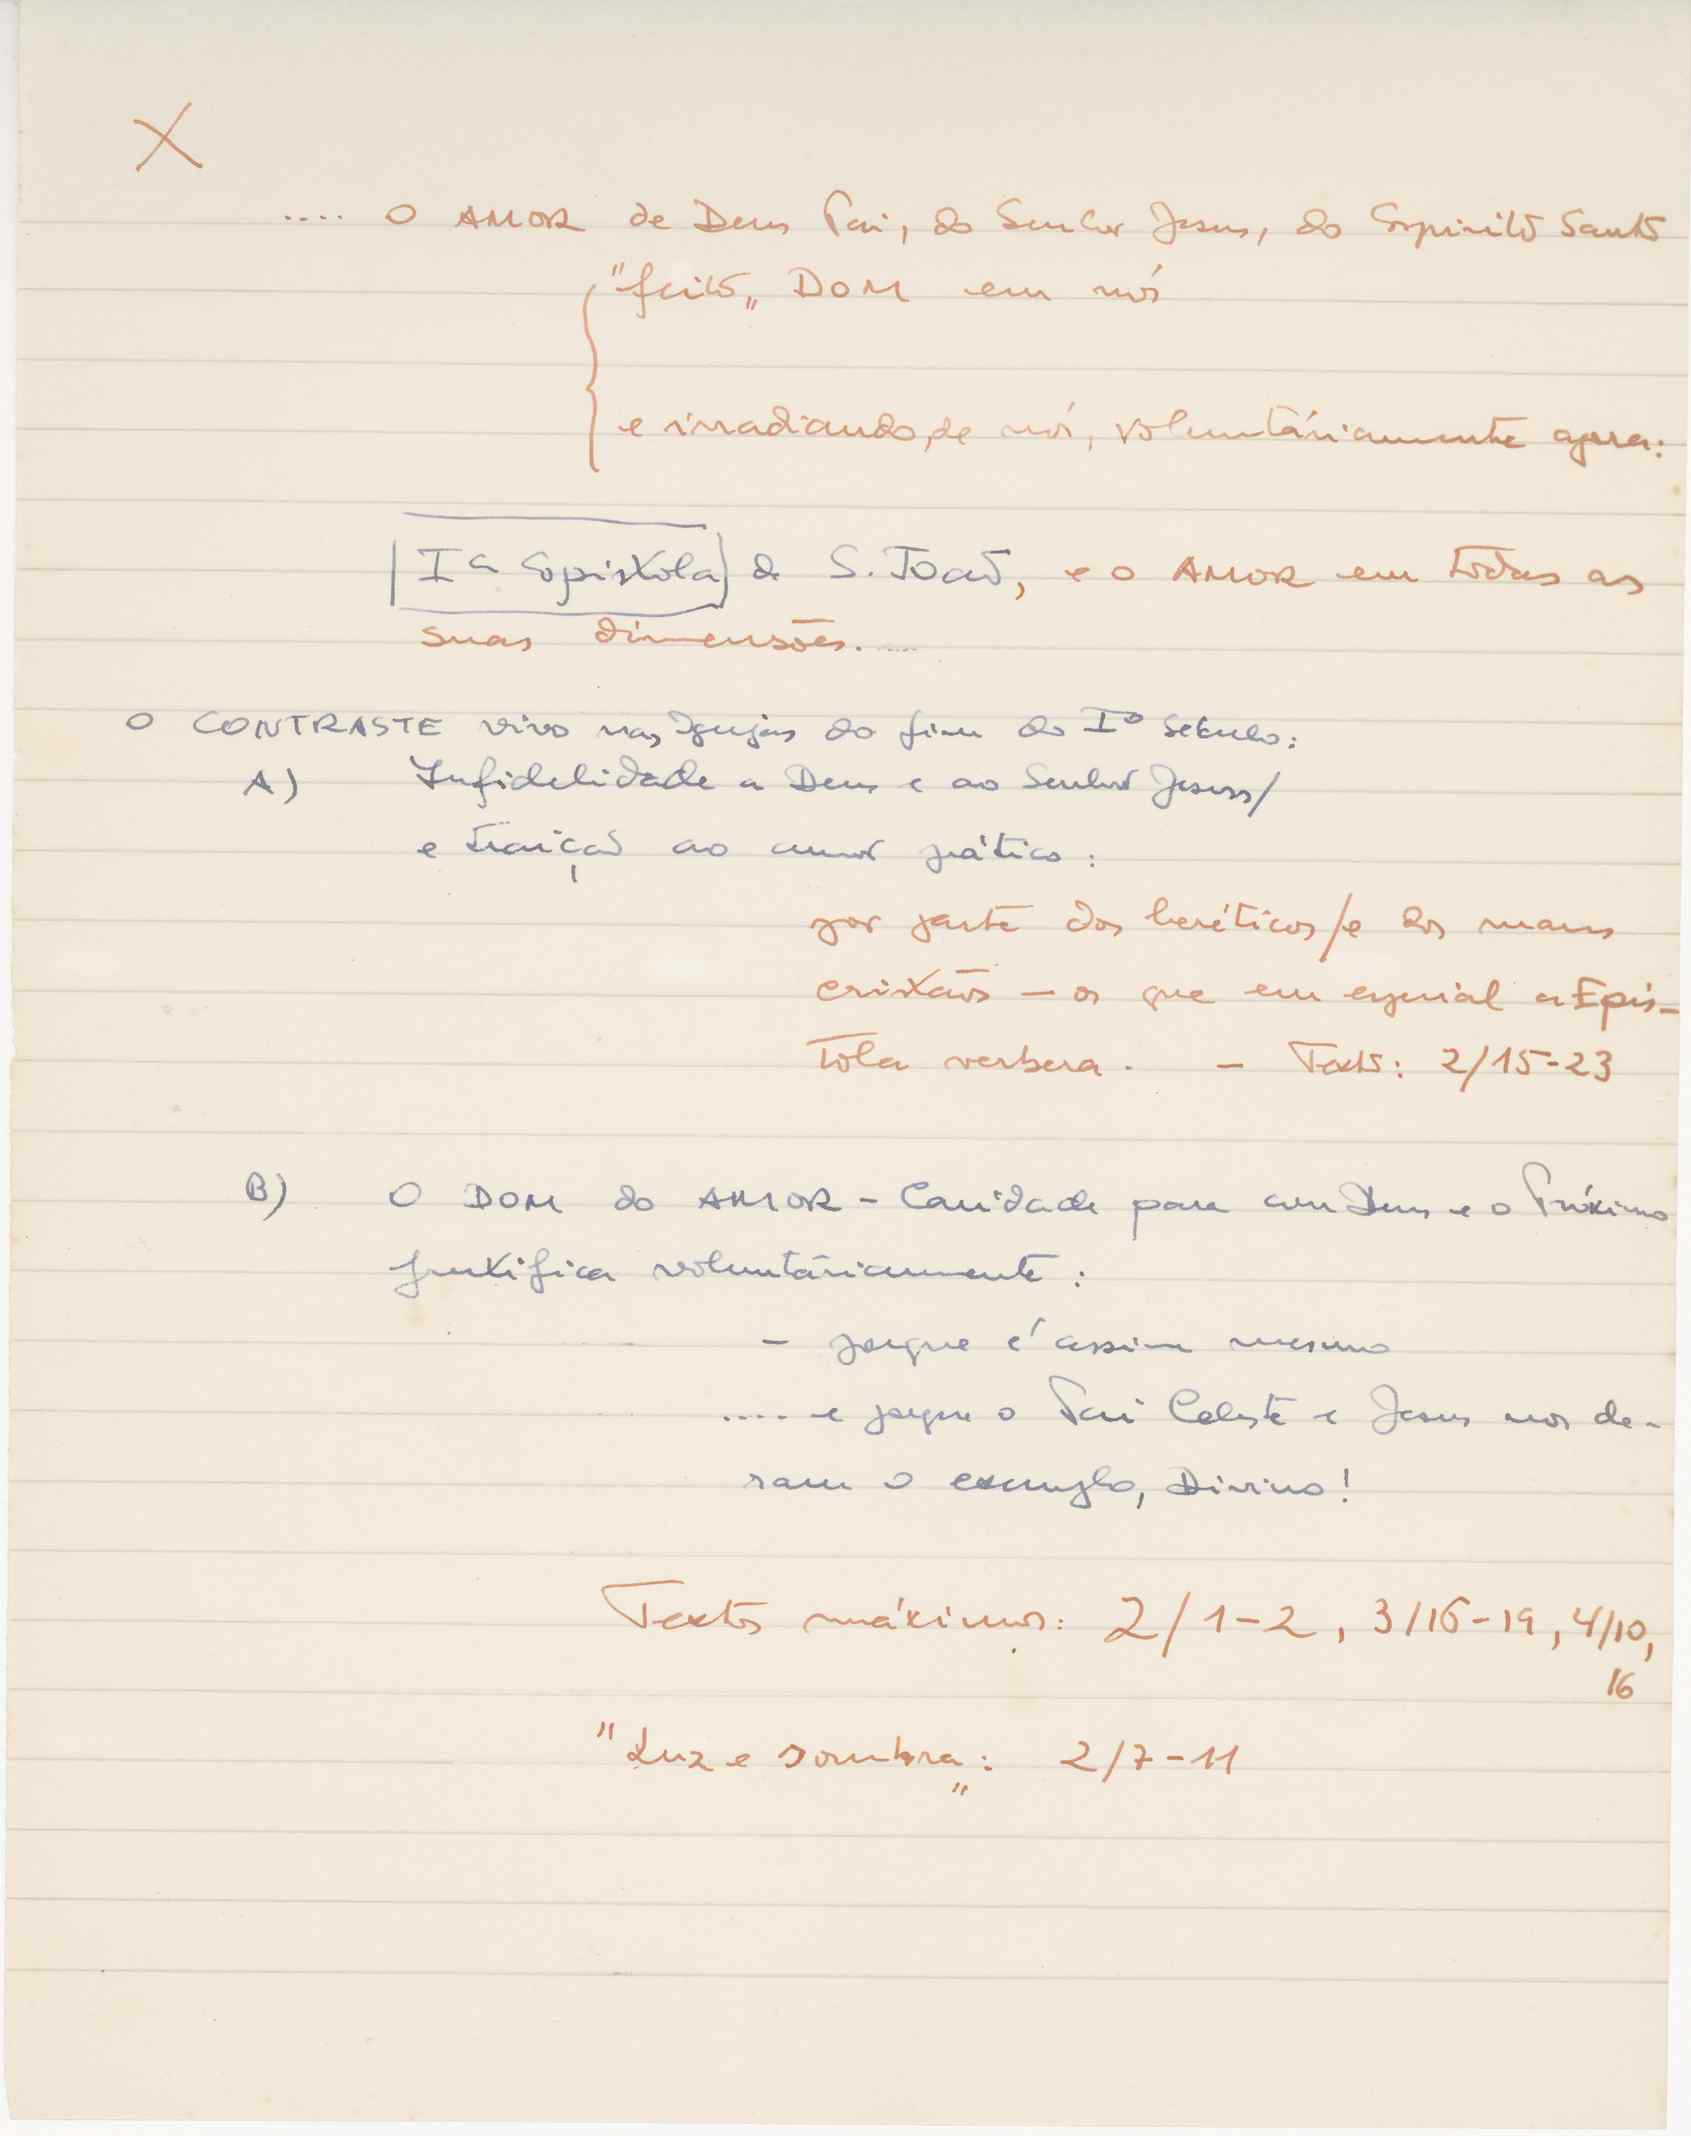 X
.... O AMOR de Deus Pai, do Senhor Jesus, do Espirito Santo
"feito„ DOM em nós
e irradiando, de nós, voluntáriamente agora:
Iª Epistola de S. João, e o AMOR em todas as
suas dimensões.....
O CONTRASTE vivo nas Igrejas do fim do Iº Século:
A) Infidelidade a Deus e ao Senhor Jesus/
e traição ao amor prático:
por parte dos heréticos/e dos maus
cristãos – os que em especial a Epis-
tola verbera. – Texto: 2/15-23
B) O DOM do AMOR – Caridade para com Deus e o Próximo
frutifica voluntáriamente:
– porque é assim mesmo
.... e porque o Pai Celeste e Jesus nos de-
ram o exemplo, Divino!
Textos máximos: 2/1-2, 3/16-19, 4/10,
16
"Luz e sombra„: 2/7-11